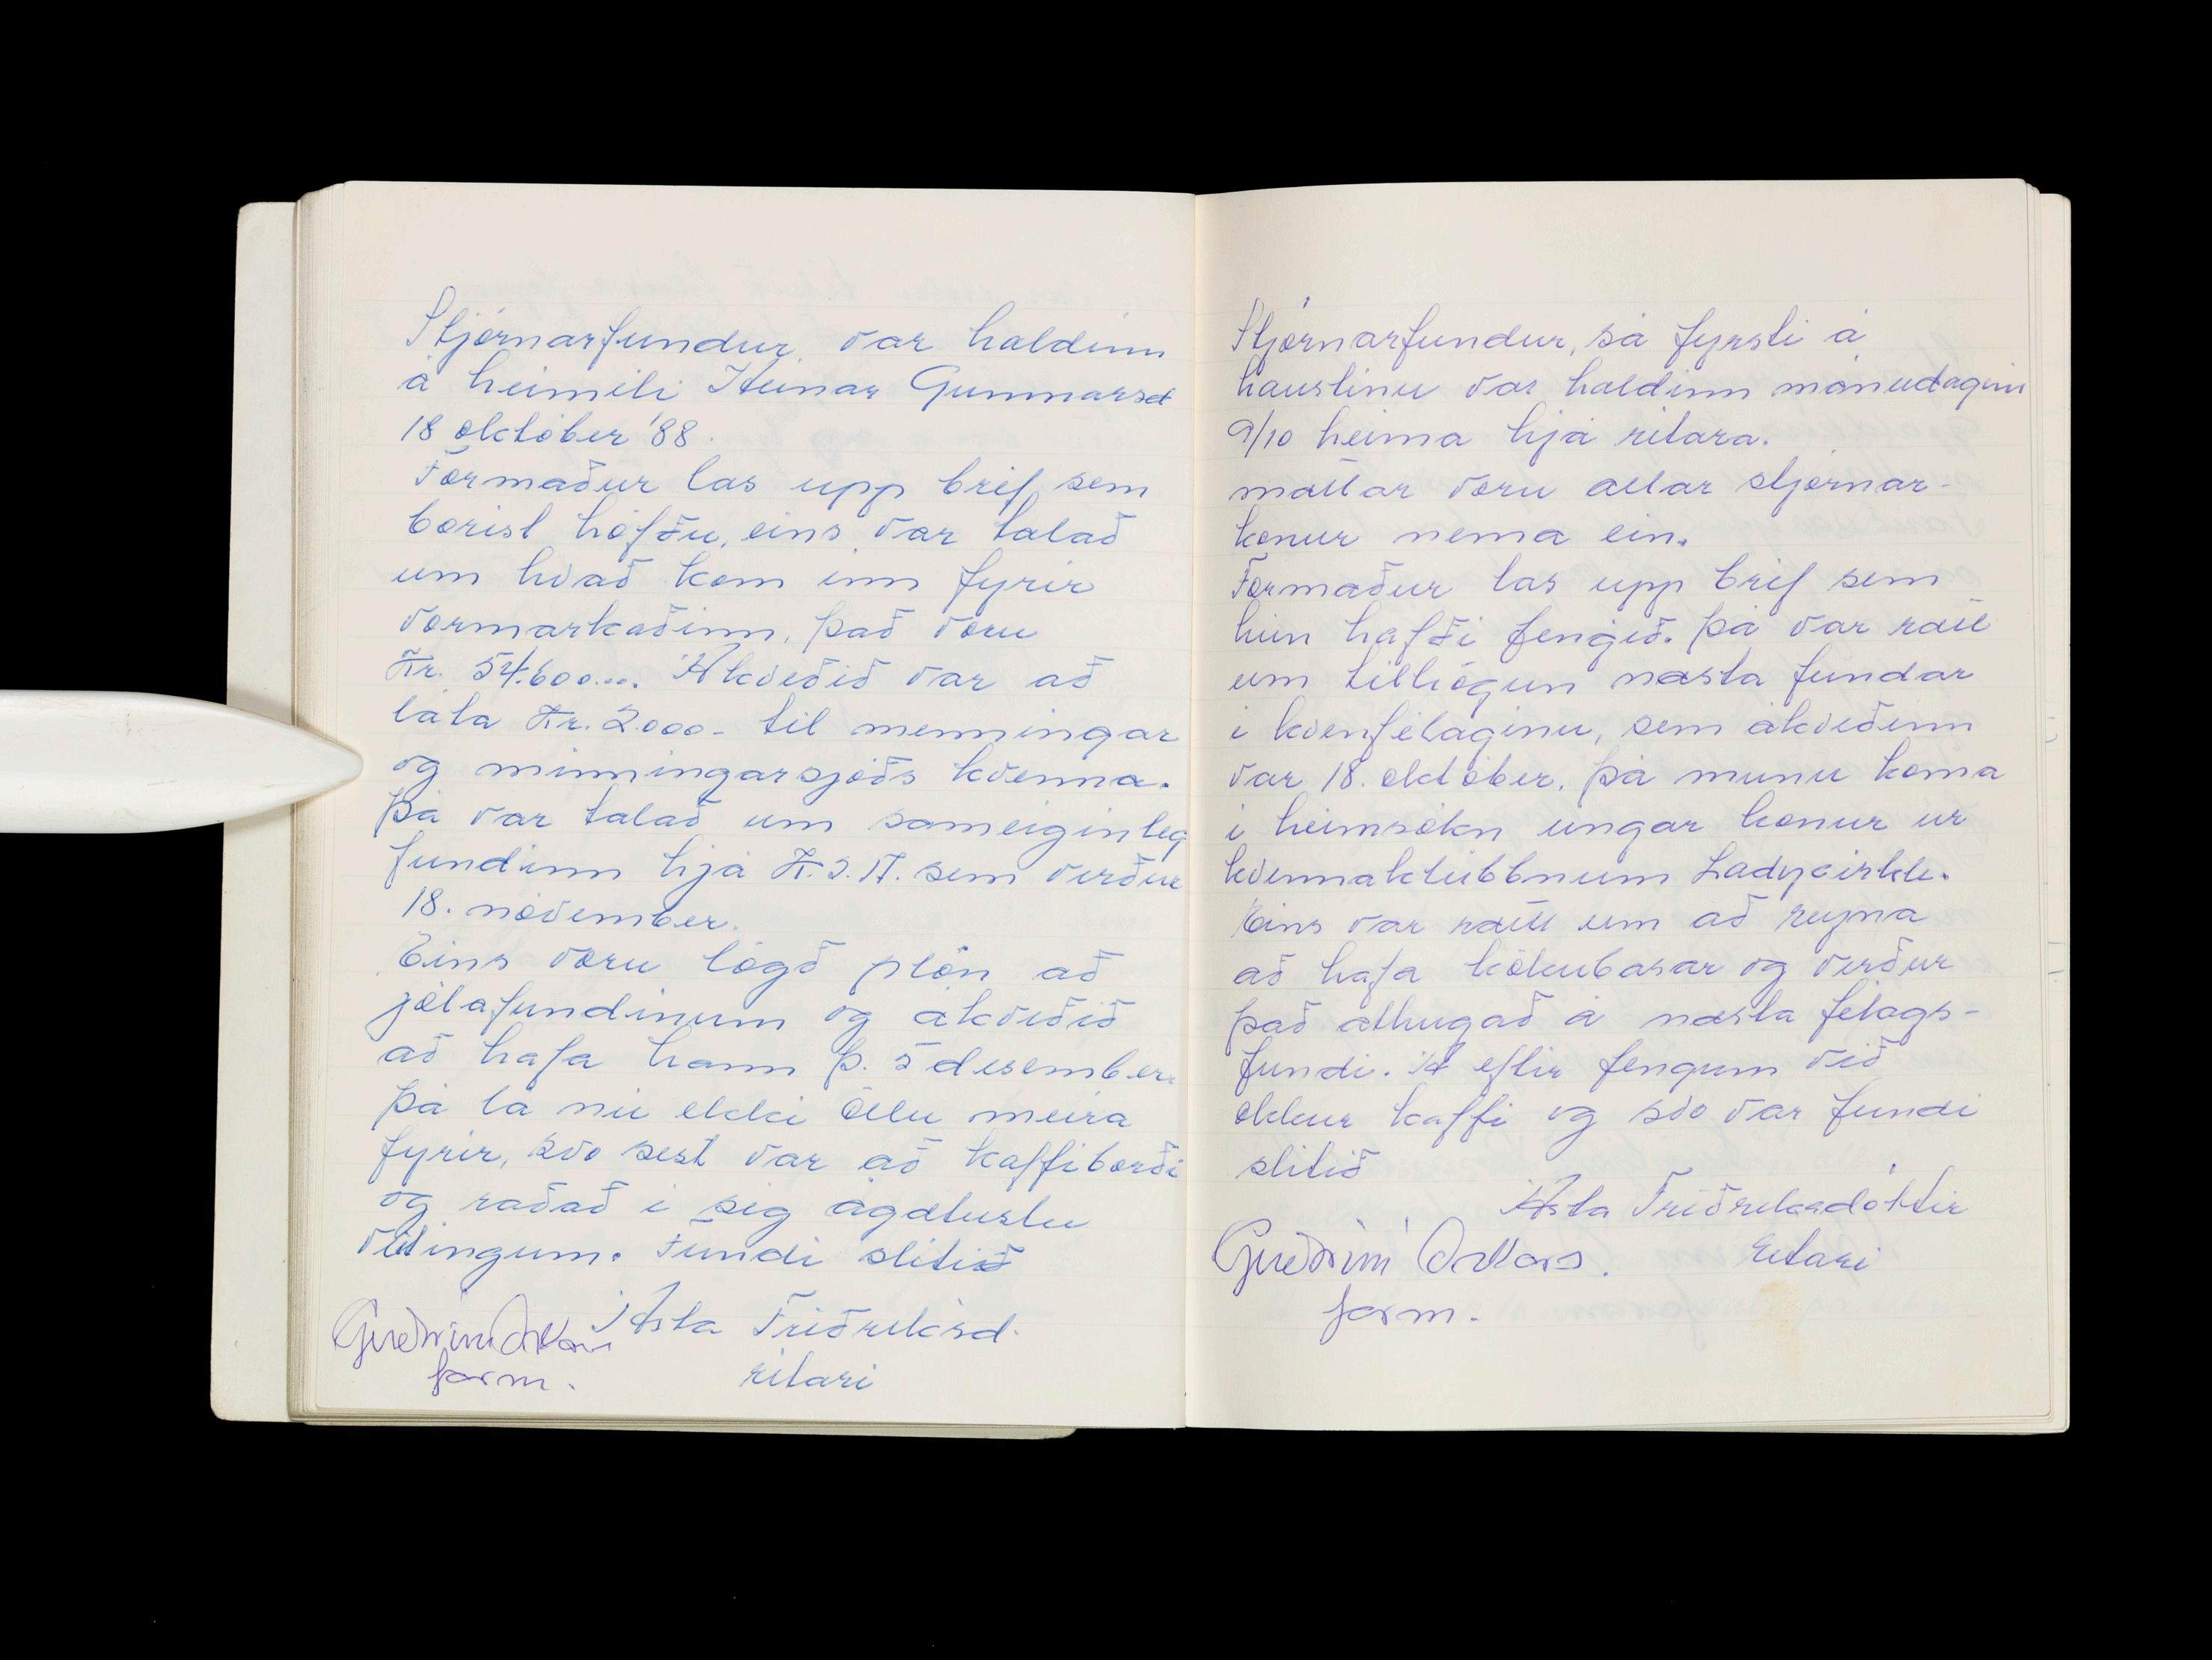 Stjórnarfundur var haldinn
á heimili Unnar Gunnarsd
18 október '88.
Formaður las upp bréf sem
borist höfðu, eins var talað
um hvað kom inn fyrir
vormarkaðinn, það voru
Kr. 54.600.-. Ákveðið var að
láta Kr. 2000- til menningar
og minningarsjóðs kvenna.
Þá var talað um sameiginleg
fundinn hjá K.S.K. sem verður
18. nóvember.
Eins voru lögð plön að
jólafundinum og ákveðið
að hafa hann þ. 5 desember.
Þá lá nú ekki öllu meira
fyrir, svo sest var að kaffiborði
og raðað í sig ágætustu
veitingum. Fundi slitið
Ásta Friðriksd.
ritari
Guðrún
form.
Stjórnarfundur, sá fyrsti á
haustinu var haldinn mánudaginn
9/10 heima hjá ritara.
mættar voru allar stjórnar-
konur nema ein.
Formaður las upp bréf sem
hún hafði fengið. Þá var rætt
um tilhögun næsta fundar
í kvenfélaginu, sem ákveðinn
var 18. október, þá munu koma
í heimsókn ungar konur úr
kvennaklúbbnum Ladycirkle.
Eins var rætt um að reyna
að hafa kökubasar og verður
það athugað á næsta félags-
fundi. Á eftir fengum við
okkur kaffi og svo var fundi
slitið
Ásta Friðriksdóttir
ritari
Guðrún
form.